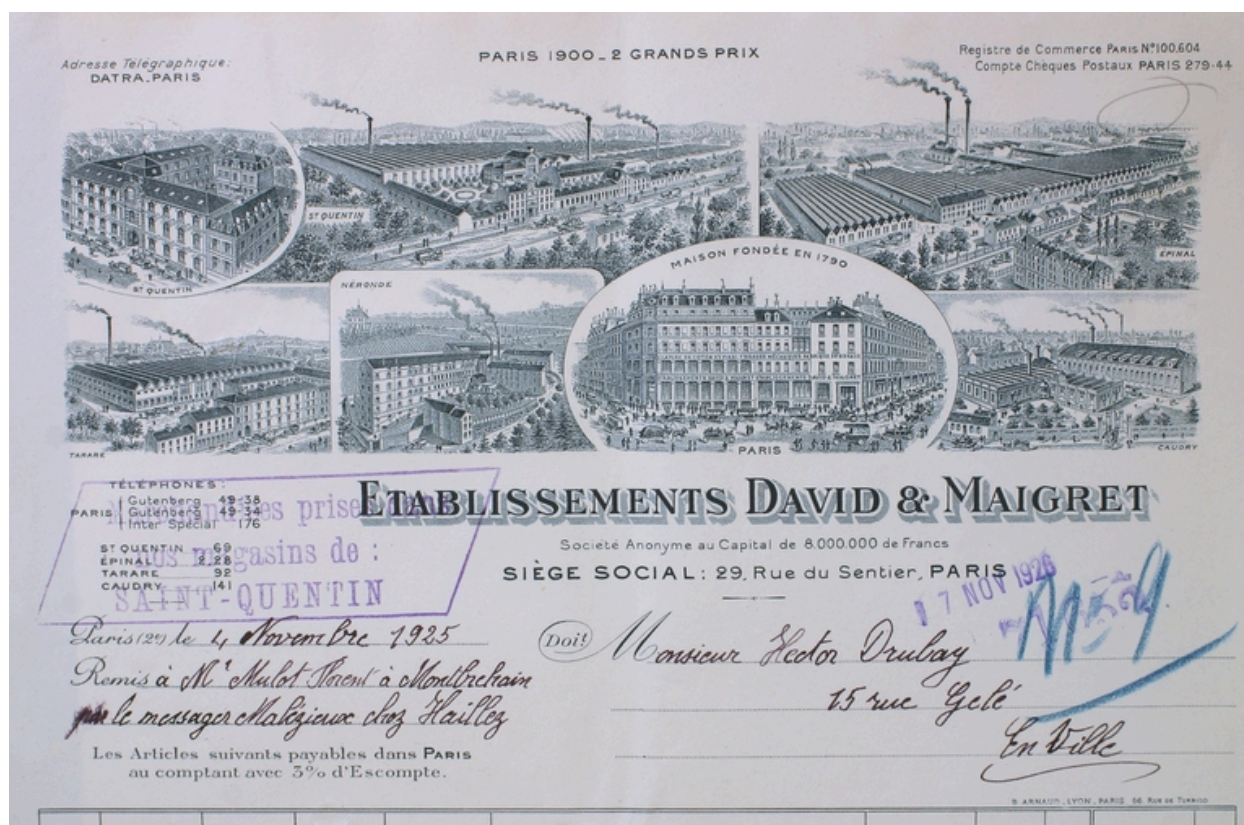 Adresse Télégraphique:
DATRA.PARIS
PARIS 1900_2 GRANDS PRIX
Registre de Commerce PARIS N° 100.604
Compte Chèques Postaux PARIS 279-44
ST QUENTIN
ST QUENTIN
ÉPINAL
NÉRONDE
MAISON FONDÉE EN 1790
TARARE
PARIS
CAUDRY
TÉLÉPHONES:
PARIS
Gutenberg 49-38
Gutenberg 49-34
Inter Spécial 176
ST QUENTIN 69
ÉPINAL 2.28
TARARE 92
CAUDRY 141
prises dans
nos magasins de :
SAINT-QUENTIN
ETABLISSEMENTS DAVID & MAIGRET
Société Anonyme au Capital de 8.000.000 de Francs
SIÈGE SOCIAL: 29, Rue du Sentier, PARIS
7 NOV 1925
Paris (2e) le 4 Novembre 1925
Remis à Mr Mulot Florent à Montbrehain
par le messager Malézieux chez Haillez
Les Articles suivants payables dans PARIS
au comptant avec 3% d'Escompte.
Doit
Monsieur Hector Drubay
15 rue Gelé
En Ville
ARNAUD_LYON_PARIS RUE DE TURBIGO